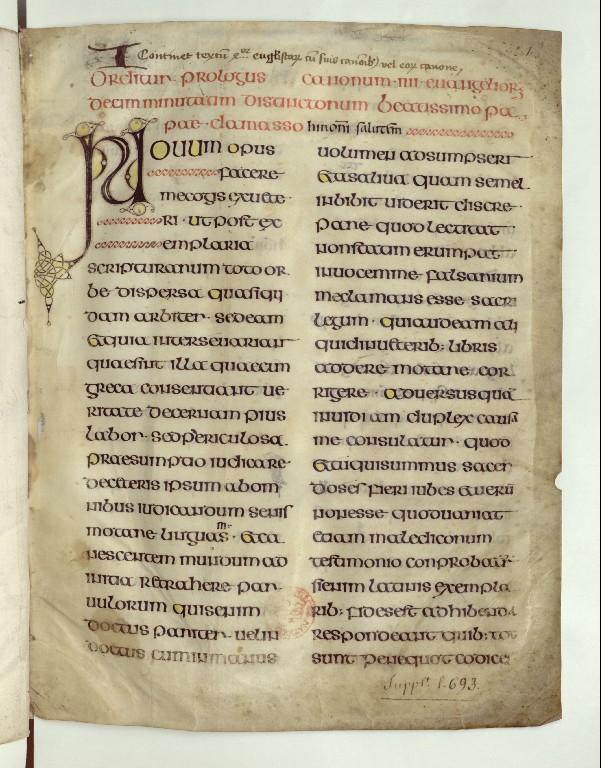 Continet textū
Orditur prologus canonum IIII euangelior;
decim minutatim distinctonum beatissimo pa
pae damasso hieronimi salutem
NOUUM opus
facere
mecogis exuete
RI · ut post ex
emplaria
scripturanum toto or
be dispersa quasiqui
dam arbiter · sedeam
&quia interseuariant
quaesint illa quaecum
greca consentiant ue
ritate decernam pius
labor · sedpericulosa
praesumptio iudicare
deceteris ipsum abom
nibus iudicandum senis
motane linguas · &ca
nescentem mundum ad
initia retrahere par
uulorum quisenim
doctus pariter uelin
doctus cummanus
uolumen adsumpseri
&asaliua quam semel
inbibit uiderit discre
pare quodlectitat
nonstatim erumpat
inuocemme falsarium
meclamans esse sacri
legum · quiaudeam ali
quidinueterib; libris
addere motane cor
rigere · aduersusquā
inuidiam duplex caus
me consulatur · quod
&tuquisummus sacer
doses fieri iubes &uerū
nonesse quoduariat
etiam maledicorum
testimonio conprobatur
sienim latinis exempla
rib; fidesest adhibenda
respondeant quib; tot
sunt penequot codice
Suppl. l. 693.